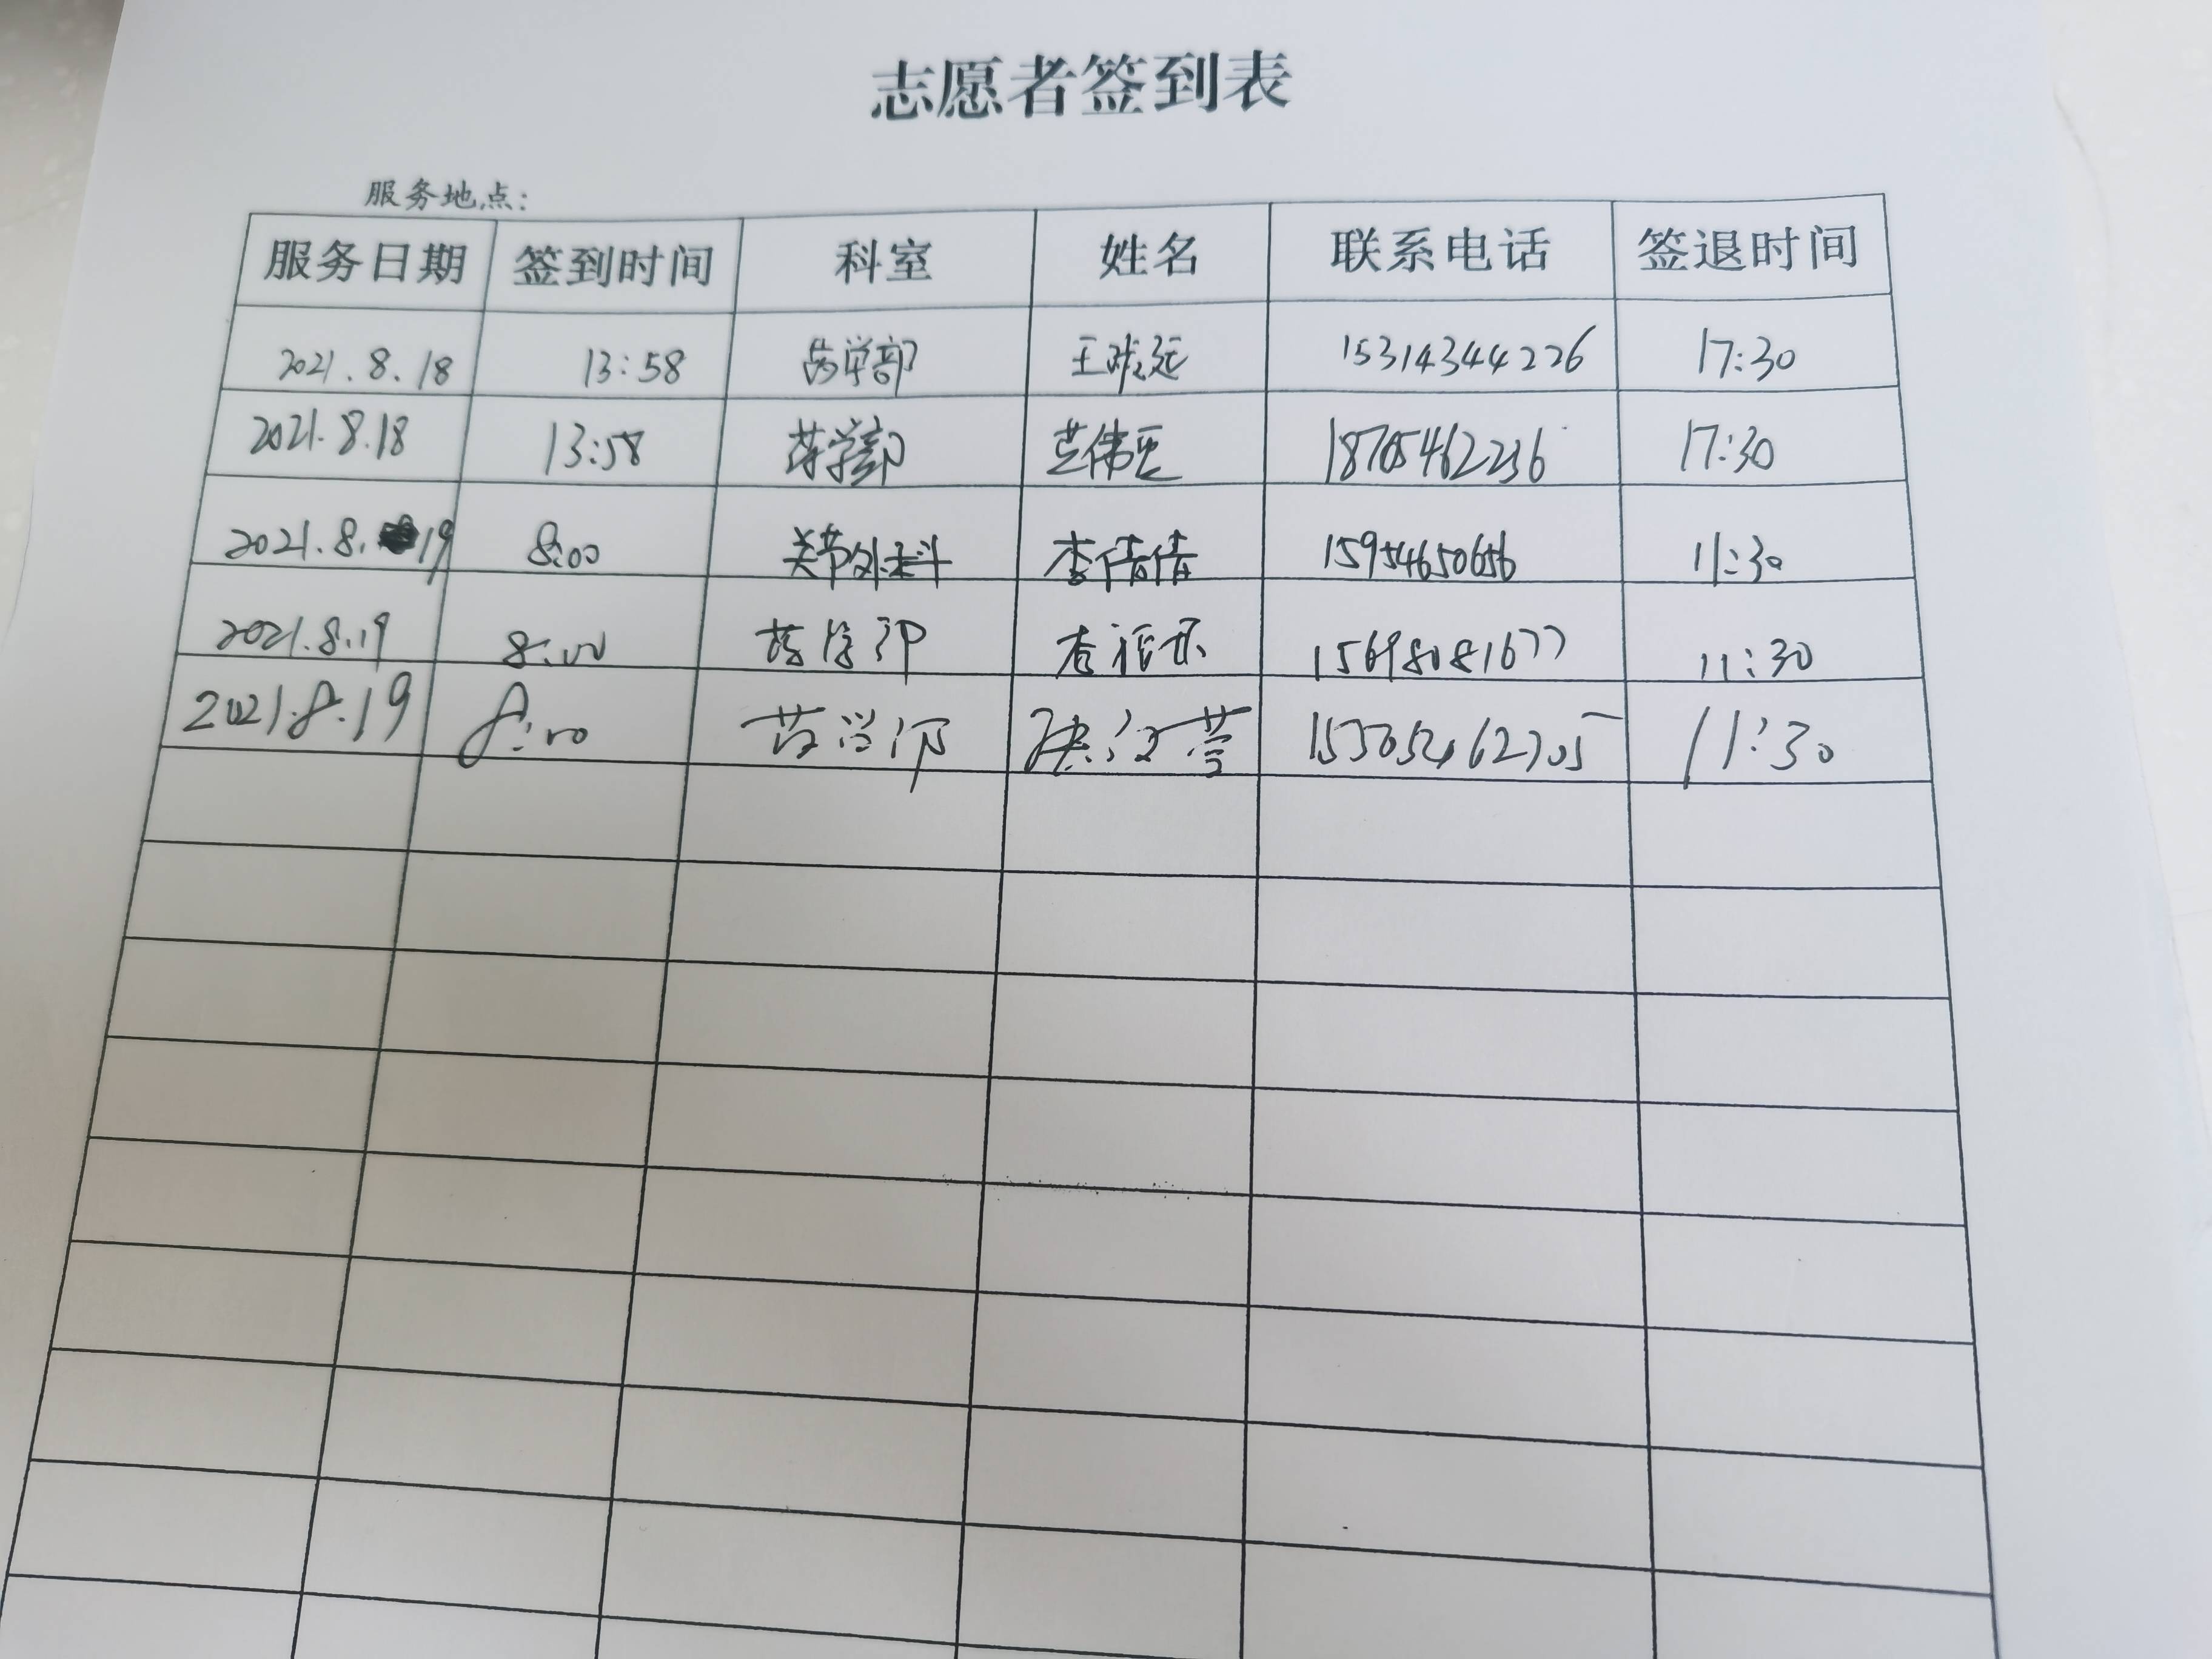 志愿者签到表
服务地点：
服务日期 签到时间 科室 姓名 联系电话 签退时间
2021.8.18 13:58 药学部 15314344226 17:30
2021.8.18 13:58 药学部 18705462236 17:30
2021.8.19 8:00 关节外科 李倩倩 15954650656 11:30
2021.8.19 8:00 药学部 15698081677 11:30
2021.8.19 8:00 药学部 11:30